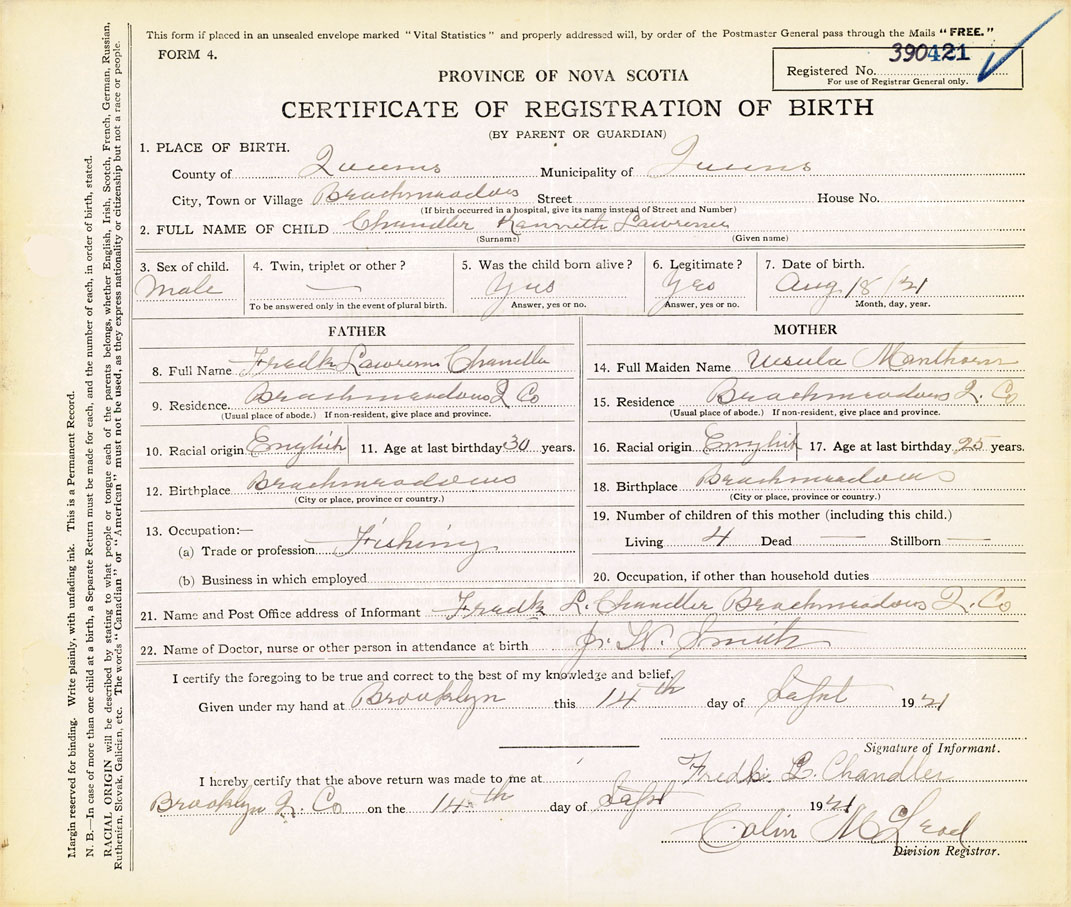 This form if placed in an unsealed envelope marked "Vital Statistics" and properly addressed will, by order of the Postmaster General pass through the Mails "FREE."
FORM 4.
390421
Registered No.
For use of Registrar General only.
PROVINCE OF NOVA SCOTIA
CERTIFICATE OF REGISTRATION OF BIRTH
(BY PARENT OR GUARDIAN)
1. PLACE OF BIRTH.
County of Queens Municipality of Queens
City, Town or Village Beachmeadows Street House No.
(If birth occurred in a hospital, give its name instead of Street and Number)
2. FULL NAME OF CHILD Chandler Kenneth Lawrence
(Surname) (Given name)
3. Sex of child. 4. Twin, triplet or other? 5. Was the child born alive? 6. Legitimate? 7. Date of birth.
Male — Yes Yes Aug 18/21
To be answered only in the event of plural birth. Answer, yes or no. Answer, yes or no. Month, day, year.
FATHER
8. Full Name Fredk Lawrence Chandler
9. Residence Beachmeadows Q Co
(Usual place of abode.) If non-resident, give place and province.
10. Racial origin English 11. Age at last birthday 30 years.
12. Birthplace Beachmeadows
(City or place, province or country.)
13. Occupation:—
(a) Trade or profession Fishing
(b) Business in which employed
MOTHER
14. Full Maiden Name Ursula Manthorn
15. Residence Beachmeadows Q. Co
(Usual place of abode.) If non-resident, give place and province.
16. Racial origin English 17. Age at last birthday 25 years.
18. Birthplace Beachmeadows
(City or place, province or country.)
19. Number of children of this mother (including this child.)
Living 4 Dead — Stillborn —
20. Occupation, if other than household duties
21. Name and Post Office address of Informant Fredk L. Chandler Beachmeadows Q. Co
22. Name of Doctor, nurse or other person in attendance at birth Smith
I certify the foregoing to be true and correct to the best of my knowledge and belief.
Given under my hand at Brooklyn this 14th day of Sept 1921
Signature of Informant.
Fredk. L. Chandler
I hereby certify that the above return was made to me at
Brooklyn Q. Co on the 14th day of Sept 1921
Colin McLeod
Division Registrar.
Margin reserved for binding. Write plainly, with unfading ink. This is a Permanent Record.
N. B.—In case of more than one child at a birth, a Separate Return must be made for each, and the number of each, in order of birth, stated.
RACIAL ORIGIN will be described by stating to what people or tongue each of the parents belongs, whether English, Irish, Scotch, French, German, Russian,
Ruthenien, Slovak, Galician, etc. The words "Canadian" or "American" must not be used, as they express nationality or citizenship but not a race or people.